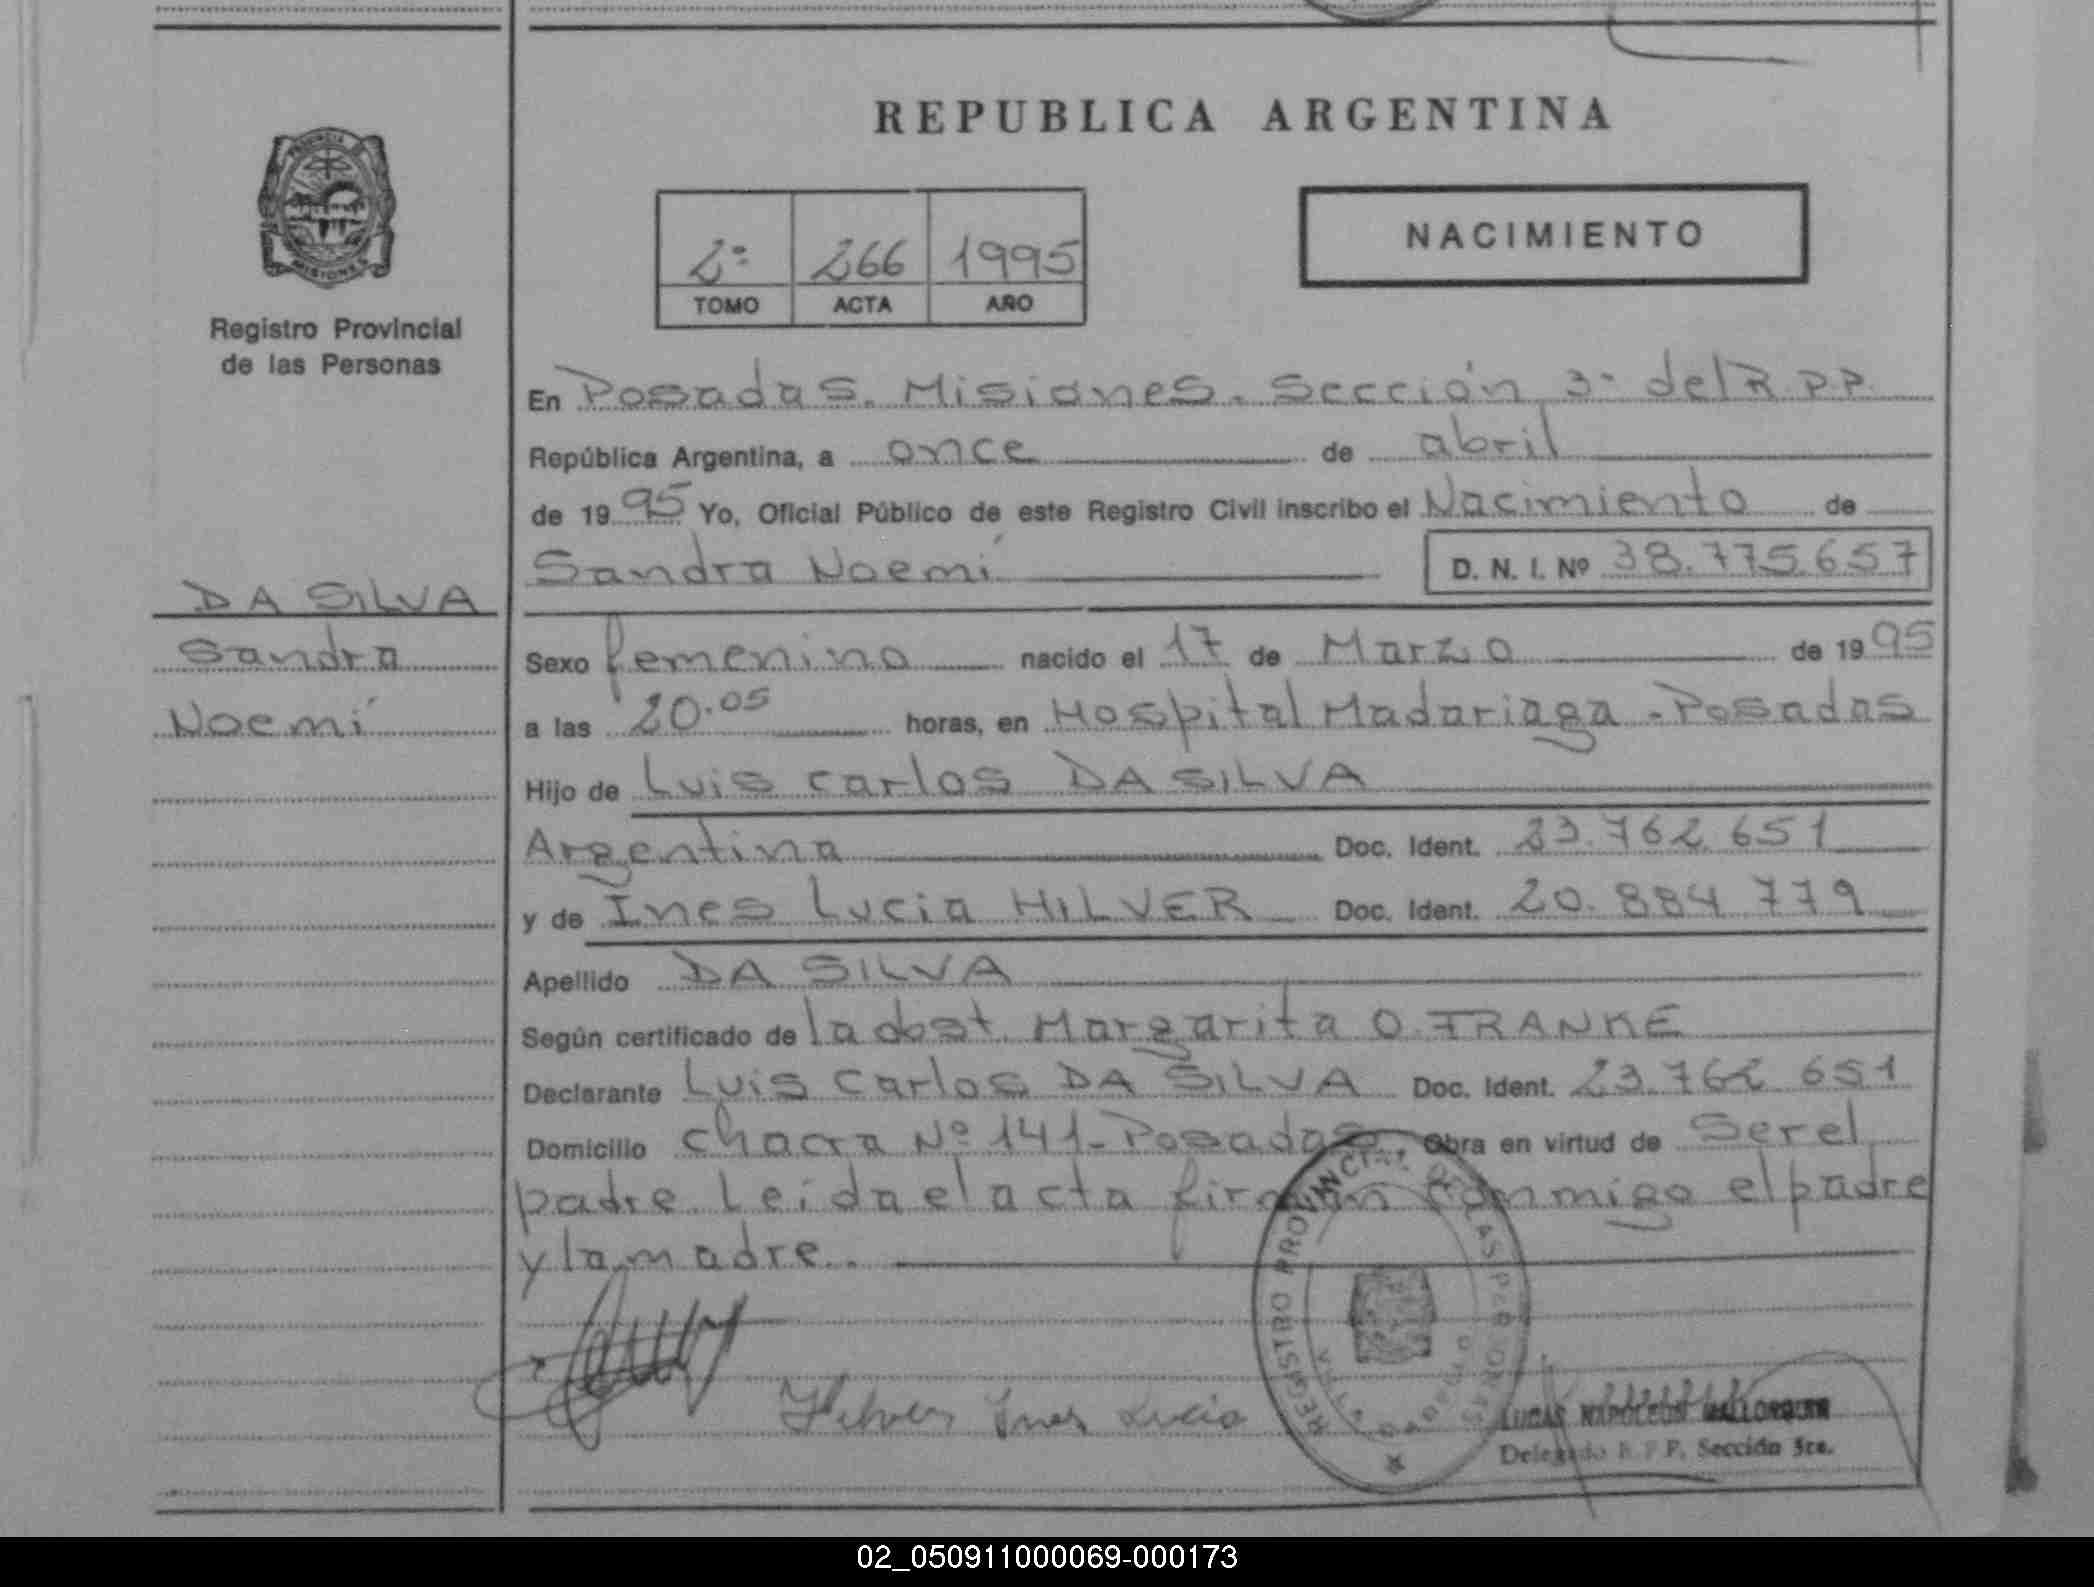 REPUBLICA ARGENTINA
PROVINCIA DE
MISIONES
Registro Provincial
de las Personas
2º 266 1995
TOMO ACTA AÑO
NACIMIENTO
En Posadas. Misiones. Sección 3ª del R.P.P.
República Argentina, a once de abril
de 1995 Yo, Oficial Público de este Registro Civil inscribo el Nacimiento de
Sandra Noemí D. N. I. Nº 38.775.657
DA SILVA
Sandra
Noemí
Sexo femenino nacido el 17 de Marzo de 1995
a las 20.05 horas, en Hospital Madariaga - Posadas
Hijo de Luis Carlos DA SILVA
Argentina Doc. Ident. 23.762.651
y de Ines Lucia HILVER Doc. Ident. 20.884.779
Apellido DA SILVA
Según certificado de la obst. Margarita O. FRANKE
Declarante Luis Carlos DA SILVA Doc. Ident. 23.762.651
Domicilio Chacra Nº 141 - Posadas Obra en virtud de Ser el
padre. Leida el acta firman conmigo el padre
y la madre.
Hilver Ines Lucia
REGISTRO PROVINCIAL DE LAS PERSONAS
LUCAS NAPOLEON MALLORQUIN
Delegado R.P.P. Sección 3ra.
02_050911000069-000173